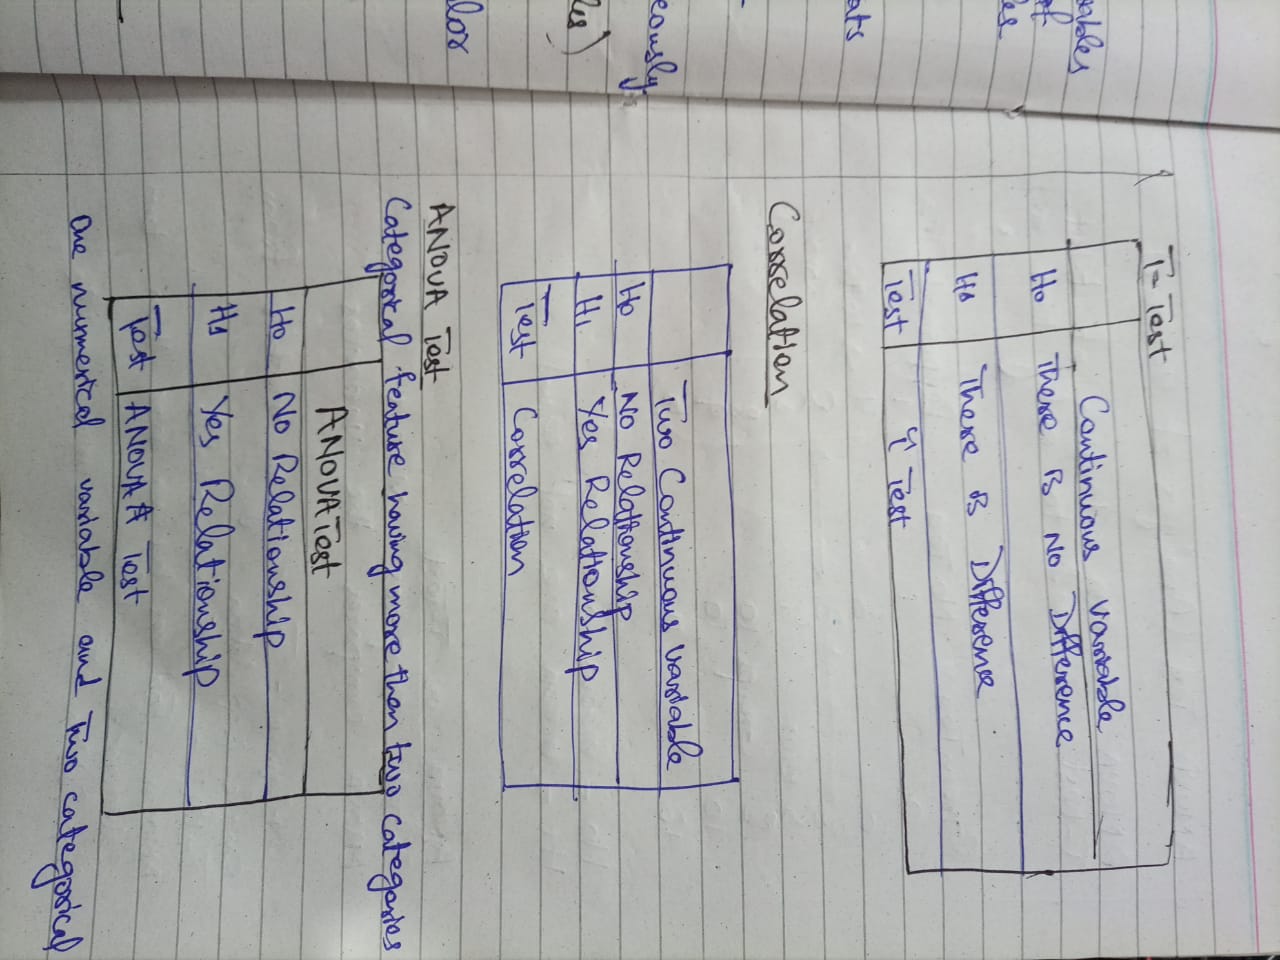 T-Test
Continuous variable
Ho There is No Difference
H1 There is Difference
Test T Test
Correlation
Two Continuous variable
Ho No Relationship
H1 Yes Relationship
Test Correlation
ANOVA Test
Categorical feature having more than two categories
ANOVA Test
Ho No Relationship
H1 Yes Relationship
Test ANOVA Test
One numerical variable and Two categorical
ables
of
les
ats
eously
les)
lor